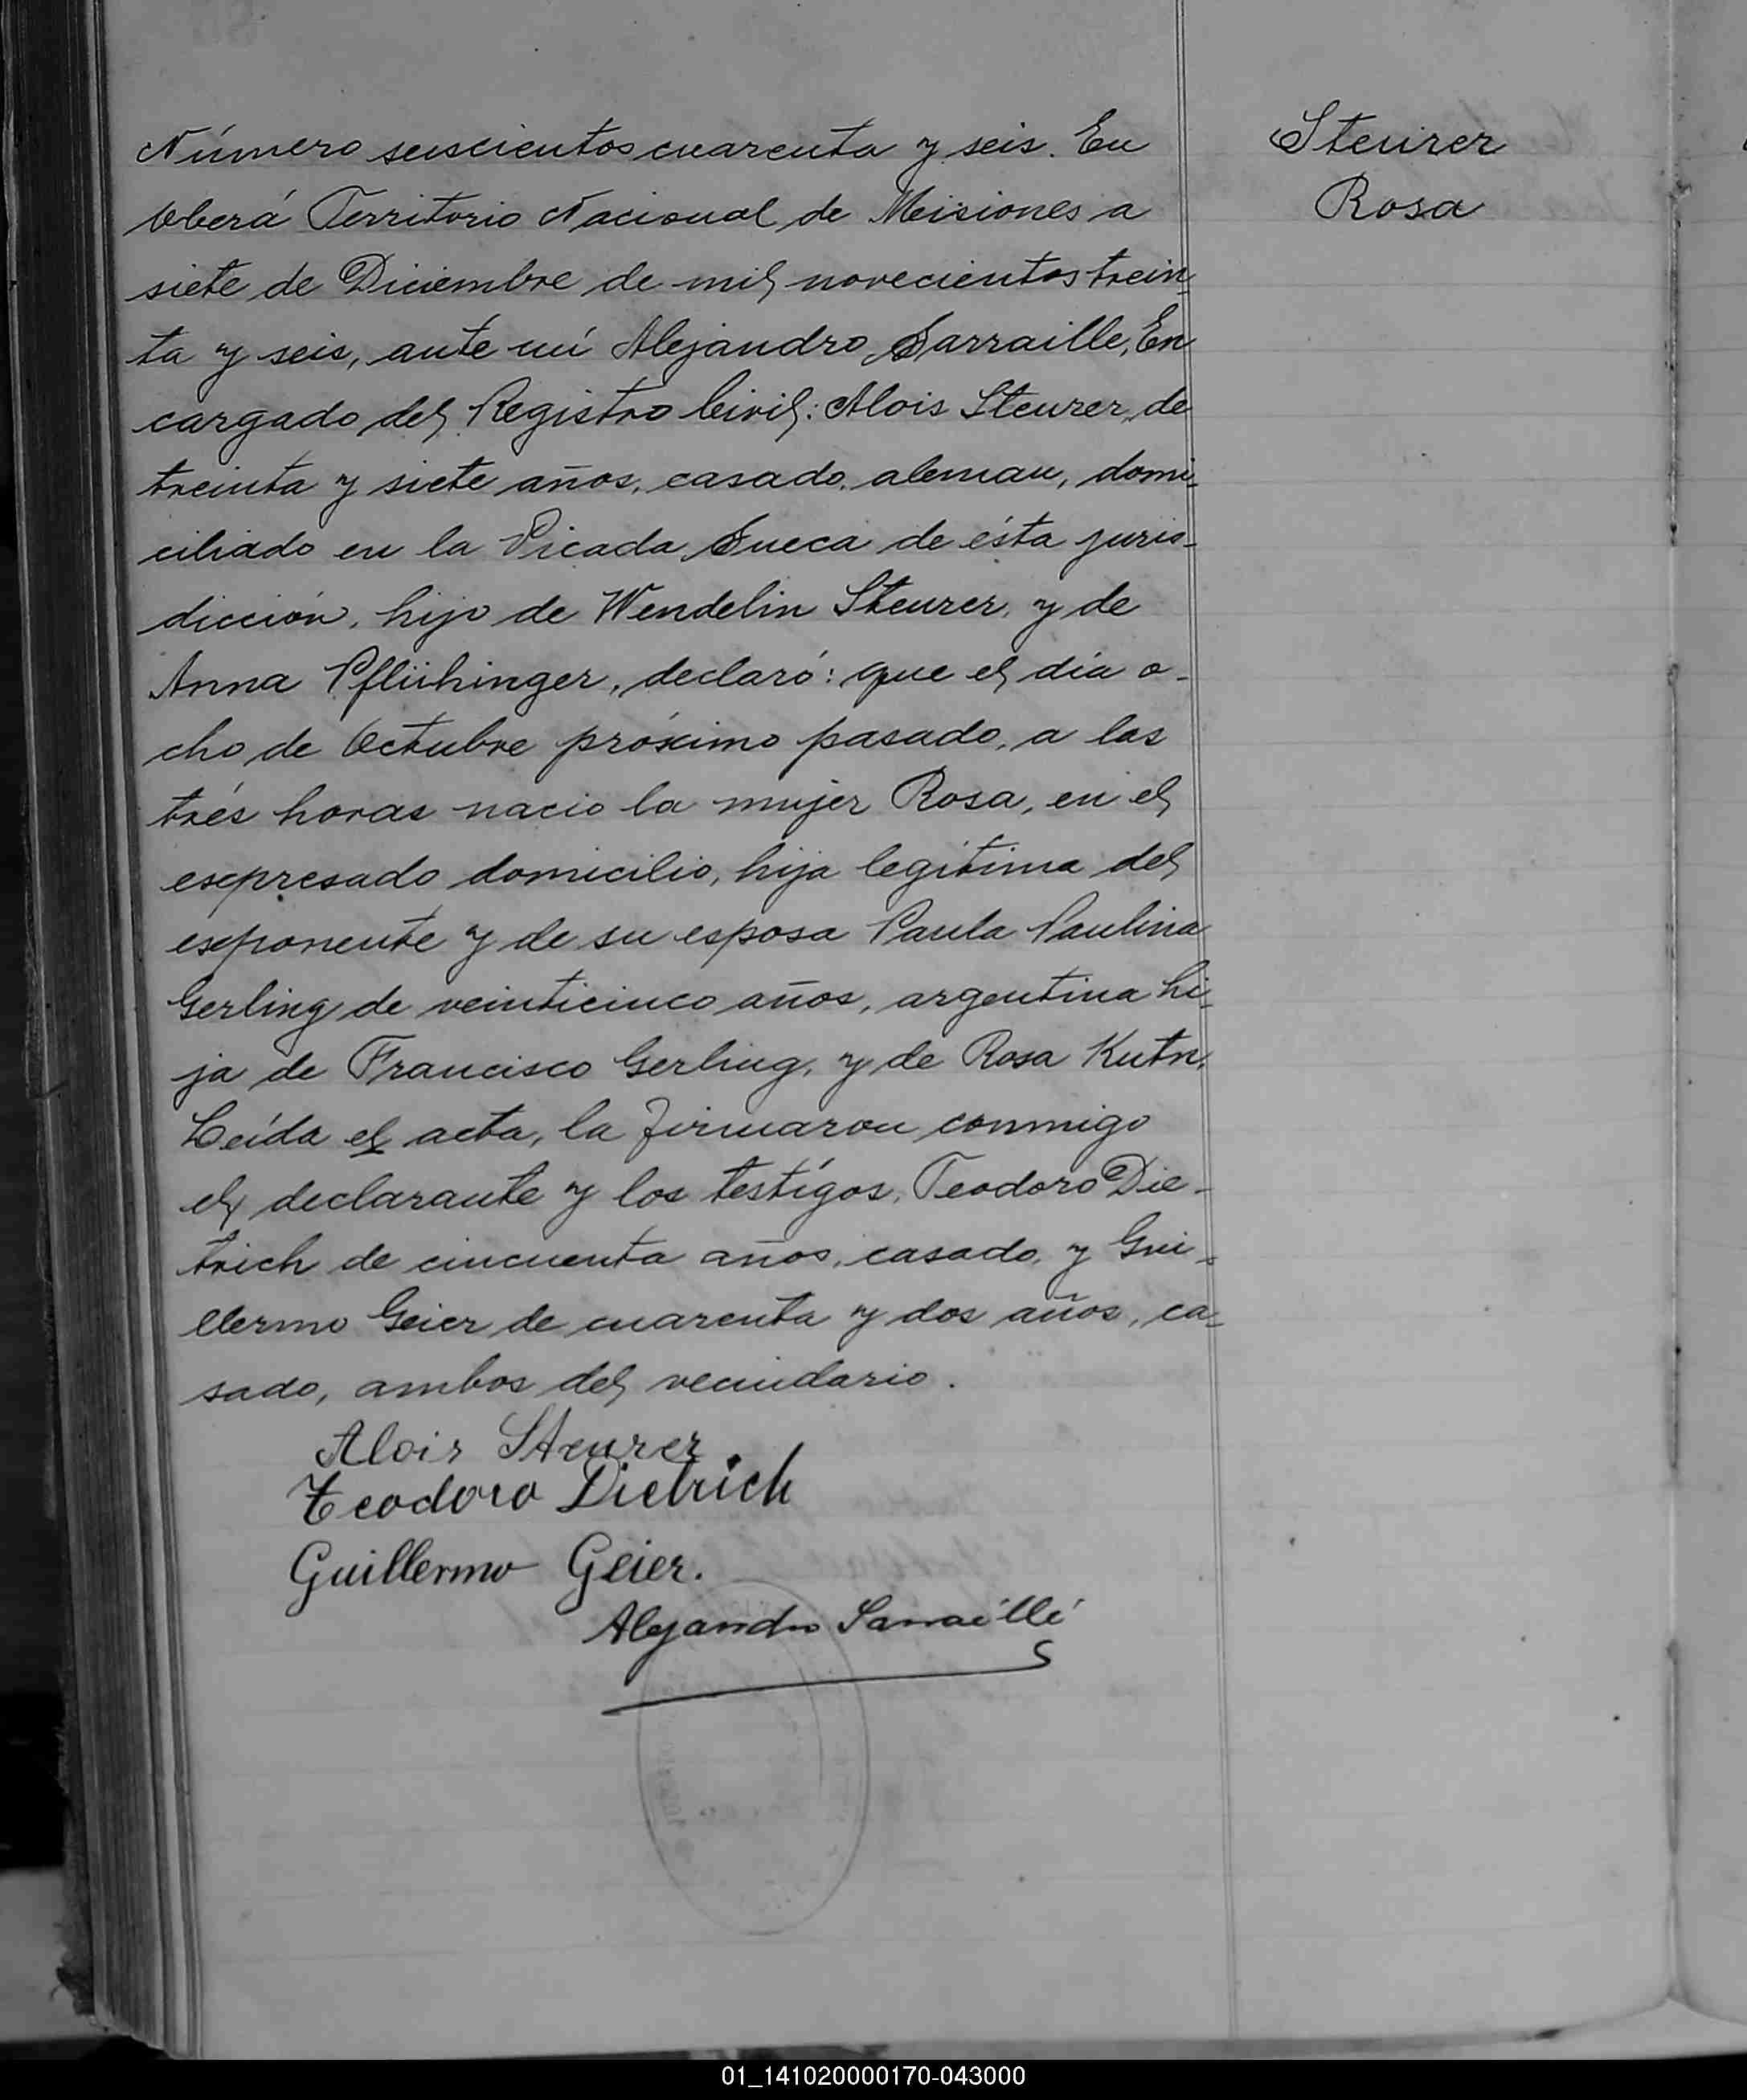 Steurer
Rosa
Número seiscientos cuarenta y seis. En
Oberá Territorio Nacional de Meisiones a
siete de Diciembre de mil novecientos trein-
ta y seis, ante mí Alejandro Sarraille, En
cargado del Registro Civil: Alois Steurer, de
treinta y siete años, casado, aleman, domi-
ciliado en la Picada Sueca de ésta juris-
dicción, hijo de Wendelin Steurer, y de
Anna Pflühinger, declaró: que el día o-
cho de Octubre próximo pasado, a las
trés horas nacio la mujer Rosa, en el
expresado domicilio, hija legítima del
exponente y de su esposa Paula Paulina
Gerling de veinticinco años, argentina hi-
ja de Francisco Gerling, y de Rosa Kutn.
Leída el acta, la firmaron conmigo
el declarante y los testígos, Teodoro Die-
trich de cincuenta años, casado, y Gui-
llermo Geier de cuarenta y dos años, ca-
sado, ambos del vecindario.
Alois Steurer.
Teodoro Dietrich
Guillermo Geier.
Alejandro Sarraillé
01_141020000170-043000